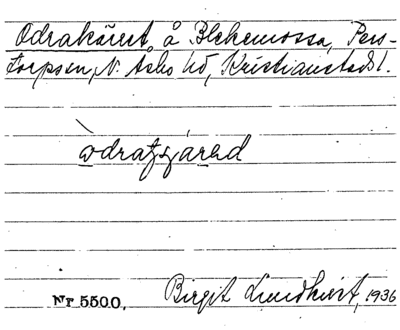 Odrakäret, å Blekemossa, Pers-
torpssn, N. Asbo hd, Kristianstads l.
Nr 5500.
Birgit Lundkvist, 1936